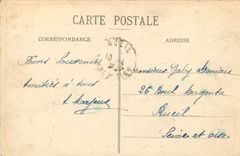 CARTE POSTALE
CORRESPONDANCE
ADRESSE
Bons Souvenirs
Amitiés à tous
Monsieur Gaby
26 Boul
Rueil
Seine et Oise